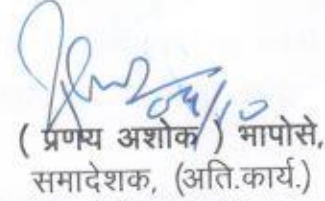 04/10
( प्रणय अशोक ) भापोसे,
समादेशक, (अति.कार्य.)